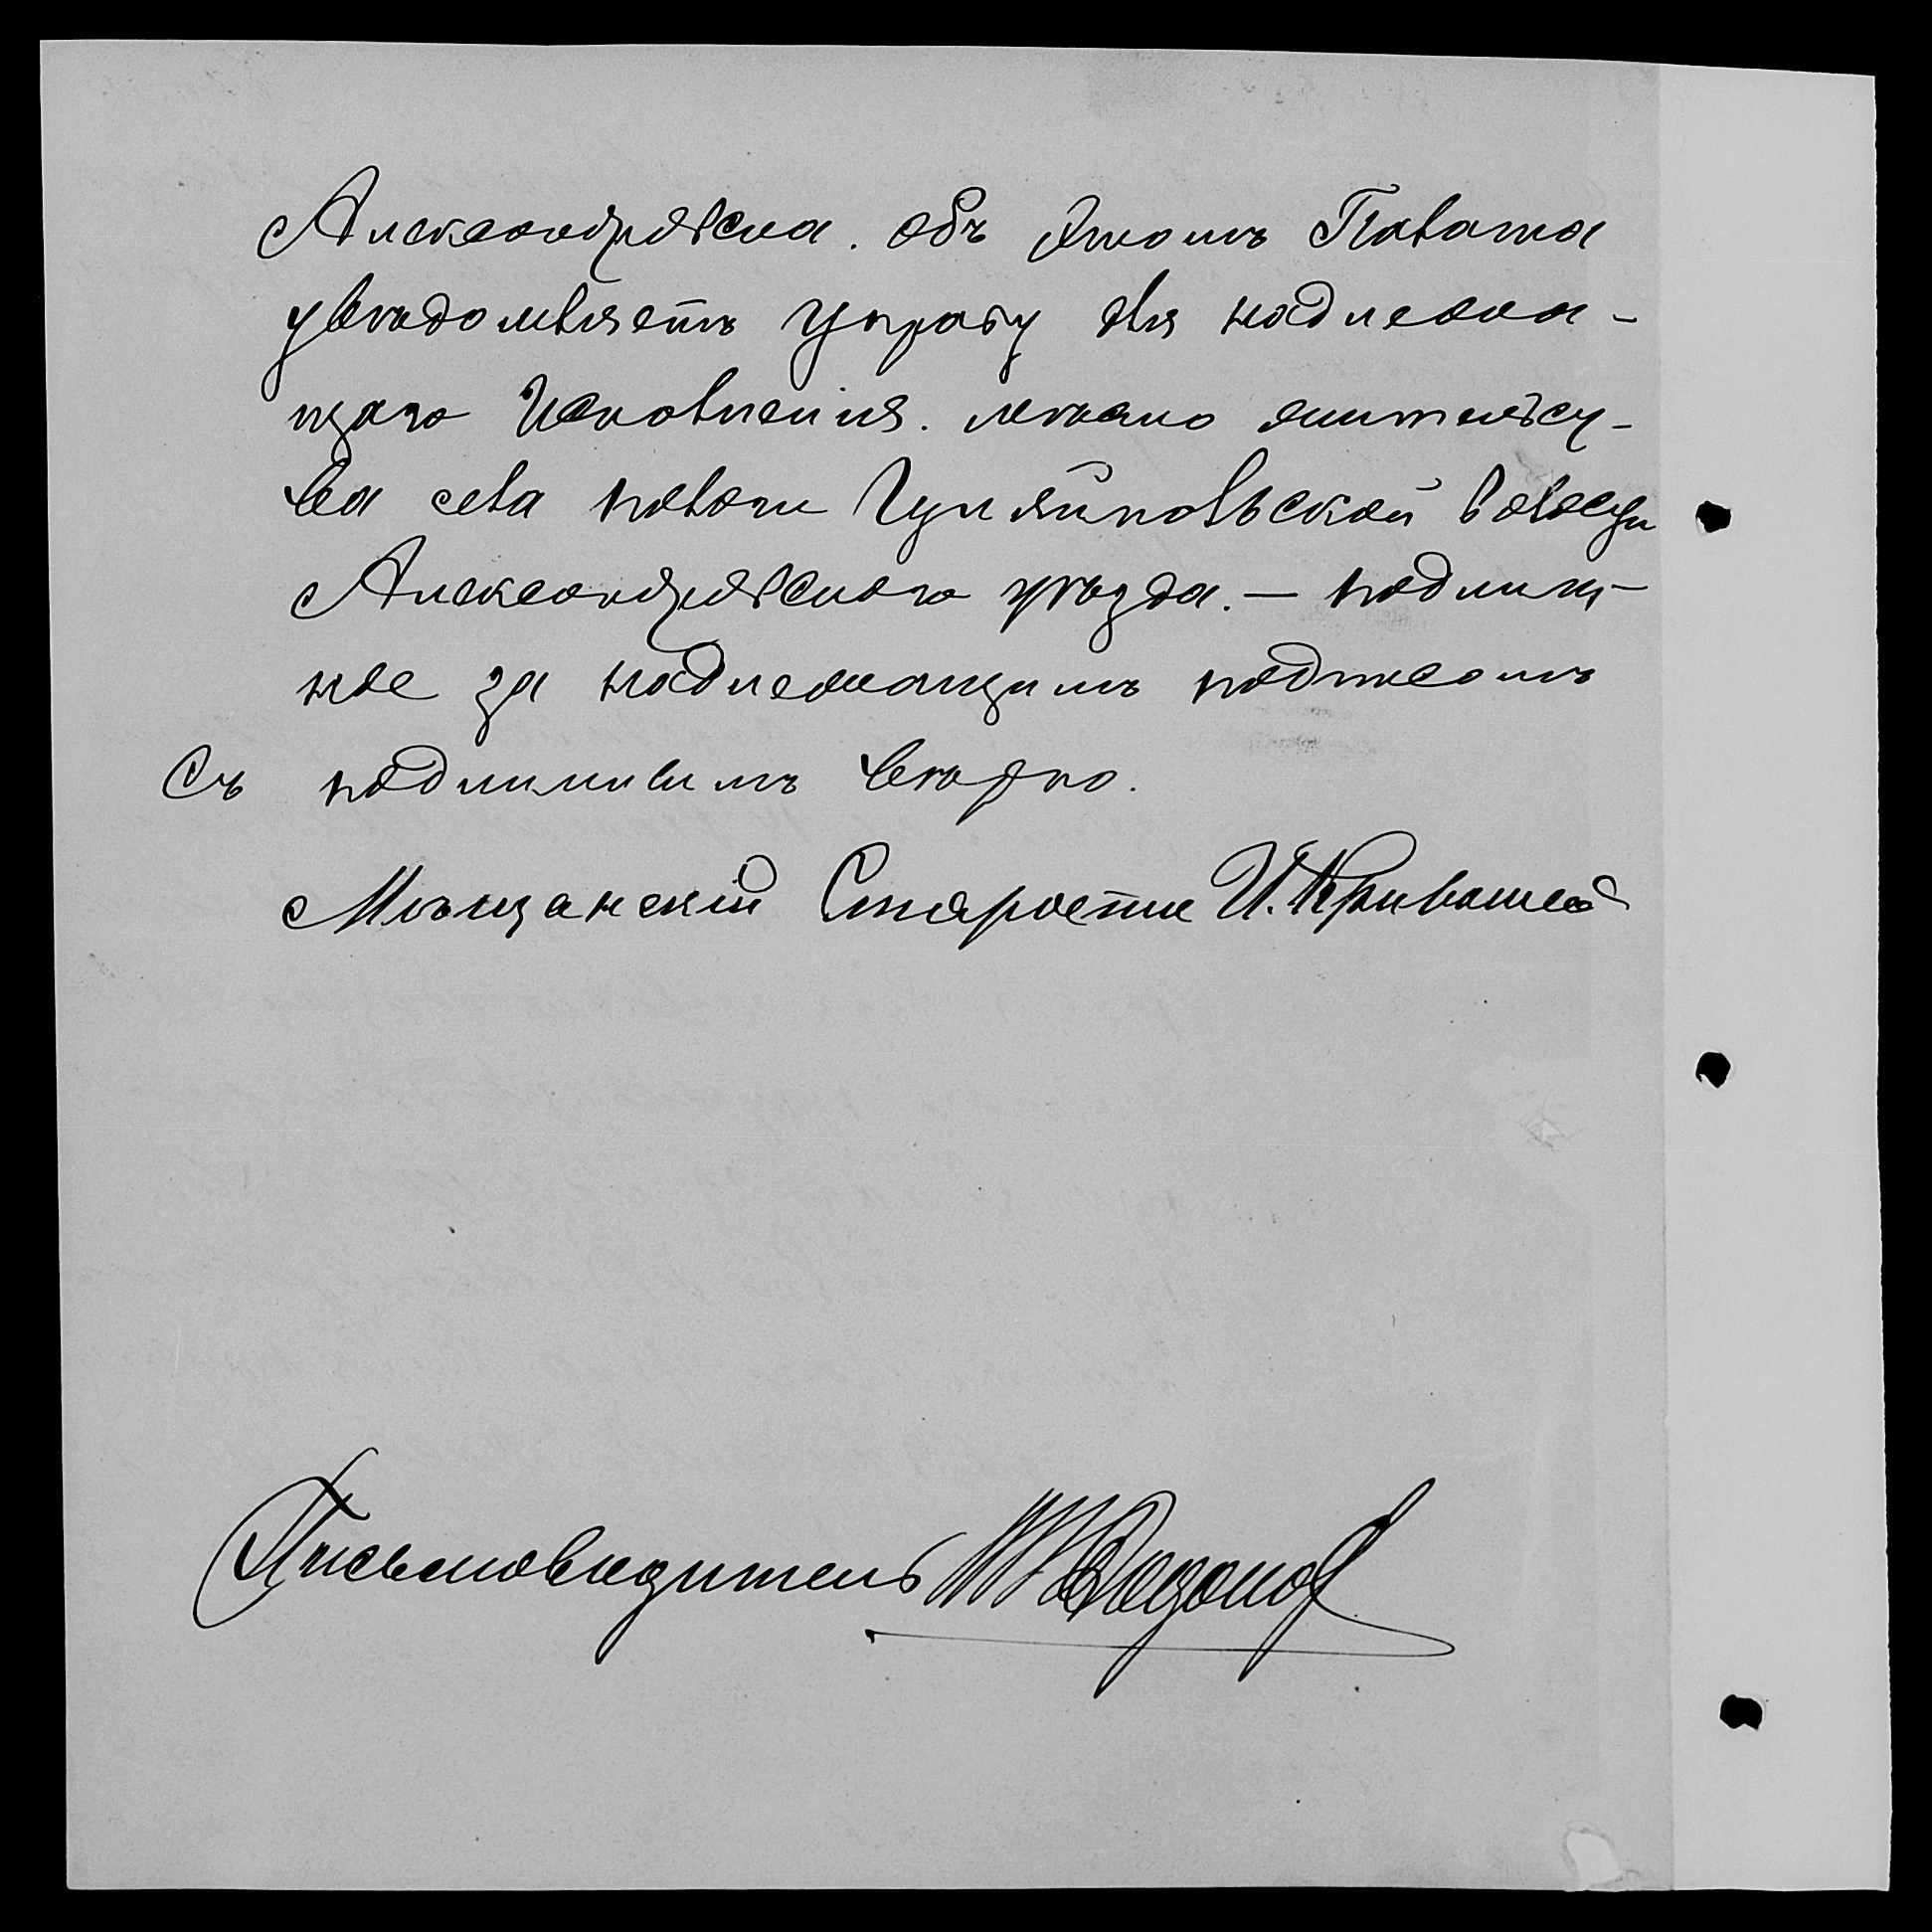 Александровска. объ этомъ Палата
увѣдомляетъ управу для надлежа-
щаго Исполненія. мѣсто жительс-
ва села пологи Гуляйпольской волости
Александровскаго уѣзда. — подлин-
ное за надлежащимъ подписомъ
Съ подлиннымъ вѣрно.
Мѣщанскій Староста И. Кривошей
Письмоводитель